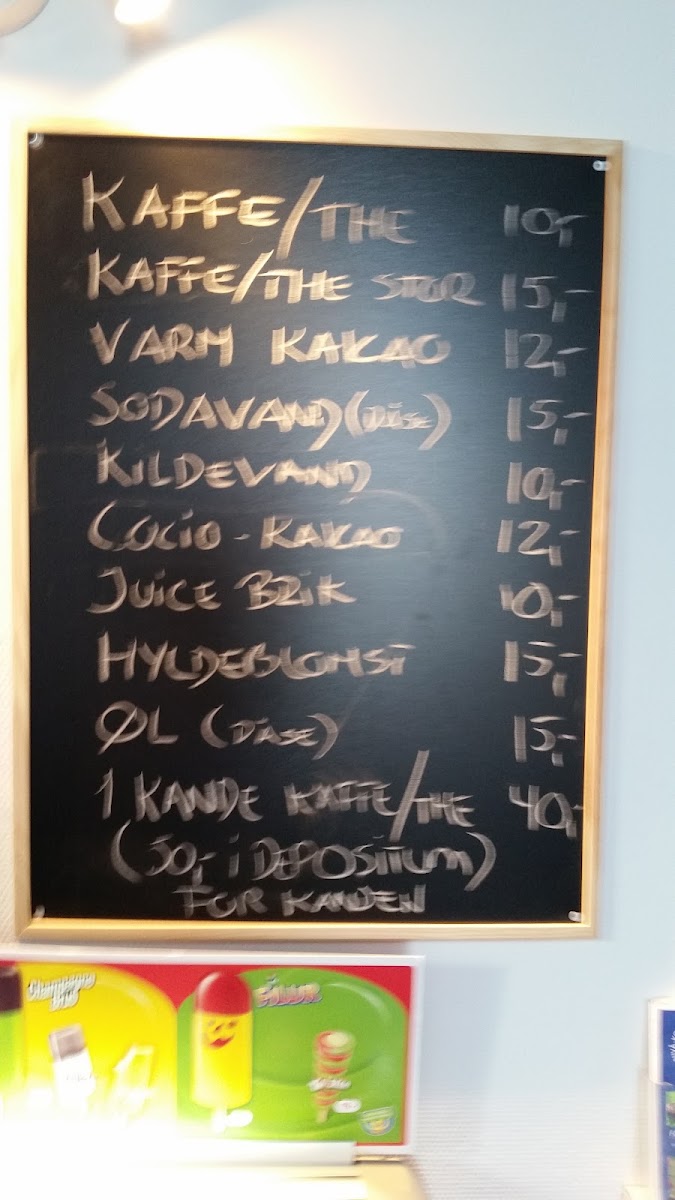 KAFFE/THE 10,-
KAFFE/THE STOR 15,-
VARM KAKAO 12,-
SODAVAND (DÅSE) 15,-
KILDEVAND 10,-
COCIO - KAKAO 12,-
JUICE BRIK 10,-
HYLDEBLOMST 15,-
ØL (DÅSE) 15,-
1 KANDE KAFFE/THE 40,-
(50,- i DEPOSITUM)
FOR KANDEN
Champagne